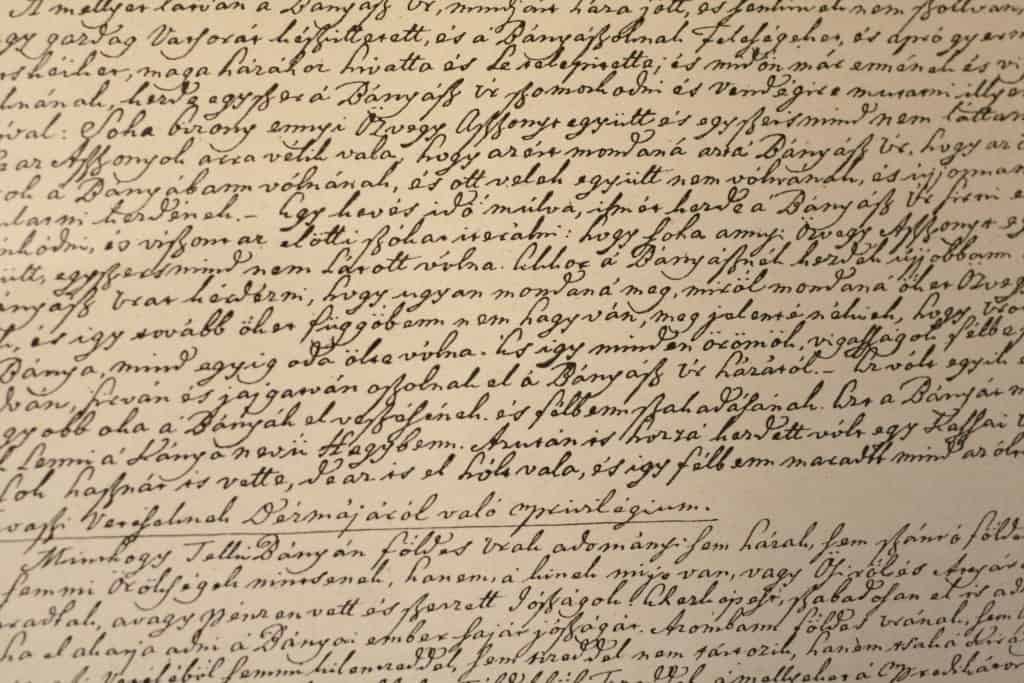 A mellyet látván a Bányász Úr, mindjárt háza jött, és senkinek nem szóllván,
gy gazdag Vatsorát készíttetett, és a Bányászoknak Feleségeket, és apró gyerm
maga házához hivatta és le telepítette; és midőn már ennének és
lnának, kezde egyszer á Bányász Úr szomorkodni és vendégire mutatni illyen
val: Soha bizony ennyi Özvegy Aszszonyt együtt és egyszersmind nem láttam
az Aszszonyok arra vélik vala, hogy azért mondaná azt á Bányász Úr, hogy az
ok á Bányábann vólnának, és ott velek együtt nem vólnának, és újjonnan
ulatni kezdének. – Egy kevés idő múlva, ismét kezde á Bányász Úr sirni
nkodni, és viszont az előtti szókat iterálni: hogy soha annyi Özvegy Aszszonyt
ütt, egyszersmind nem látott vólna. Ekkor á Bányásznék kezdék újjobbann
ányász Urat kérdezni, hogy ugyan mondaná meg, miről mondaná őket Özve
és igy tovább őket függőbenn nem hagyván, meg jelenté nékiek, hogy
Bánya, mind egyig oda ölte vólna. És igy minden örömök, vigasságok félbe
ván, sirván és jajgatván oszolnak el á Bányász Úr házától. – Ez vólt egyik
gyobb oka á Bányák el veszésének és félbenn szakadásának. Ezt a Bányát
Lenni á Kánya nevű Hegybenn. Azután is hozzá kezdett vólt egy Kassai
sok hasznát is vette, de az is el hólt vala, és igy félbenn maradtt mind az
Verseknek Dézmájáról való Privilégium.
Minthogy Telki Bányán földes Urak adományi sem házak, sem szántó földe
semmi Örökségek nintsenek, hanem, á kinek mije van, vagy Ősiről és Atyár
radtak, avagy pénzen vett és szerzett Jószágok: Ekképest, szabadosan el is ad
ha el akarja adni á Bányai ember saját jószágát. Azombann földes Urának, sem
semmi kilentzeddel, sem tizeddel nem tartozik, hanem tsak á